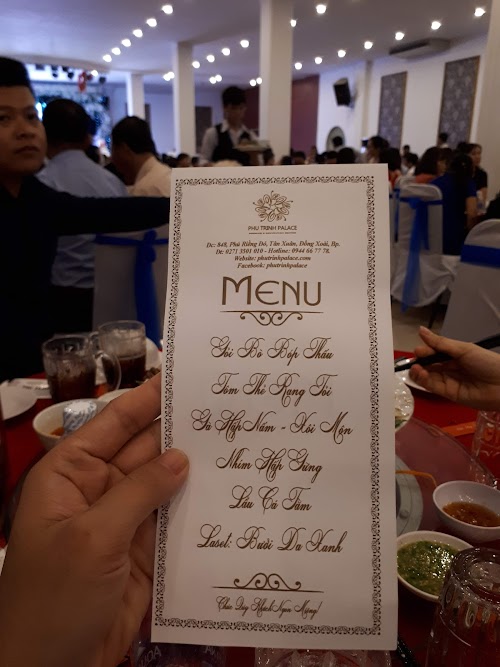 PHU TRINH PALACE
Đc: 848, Phú Riềng Đỏ, Tân Xuân, Đồng Xoài, Bp.
Đt: 0271 3501 010 - Hotline: 0944 66 77 78.
Website: phutrinhpalace.com
Facebook: phutrinhpalace
MENU
Gỏi Bò Bóp Thấu
Tôm Thẻ Rang Tỏi
Gà Hấp Nấm - Xôi Mặn
Nhím Hấp Gừng
Lẩu Cá Tầm
Laset: Bưởi Da Xanh
Chúc Quý Khách Ngon Miệng!